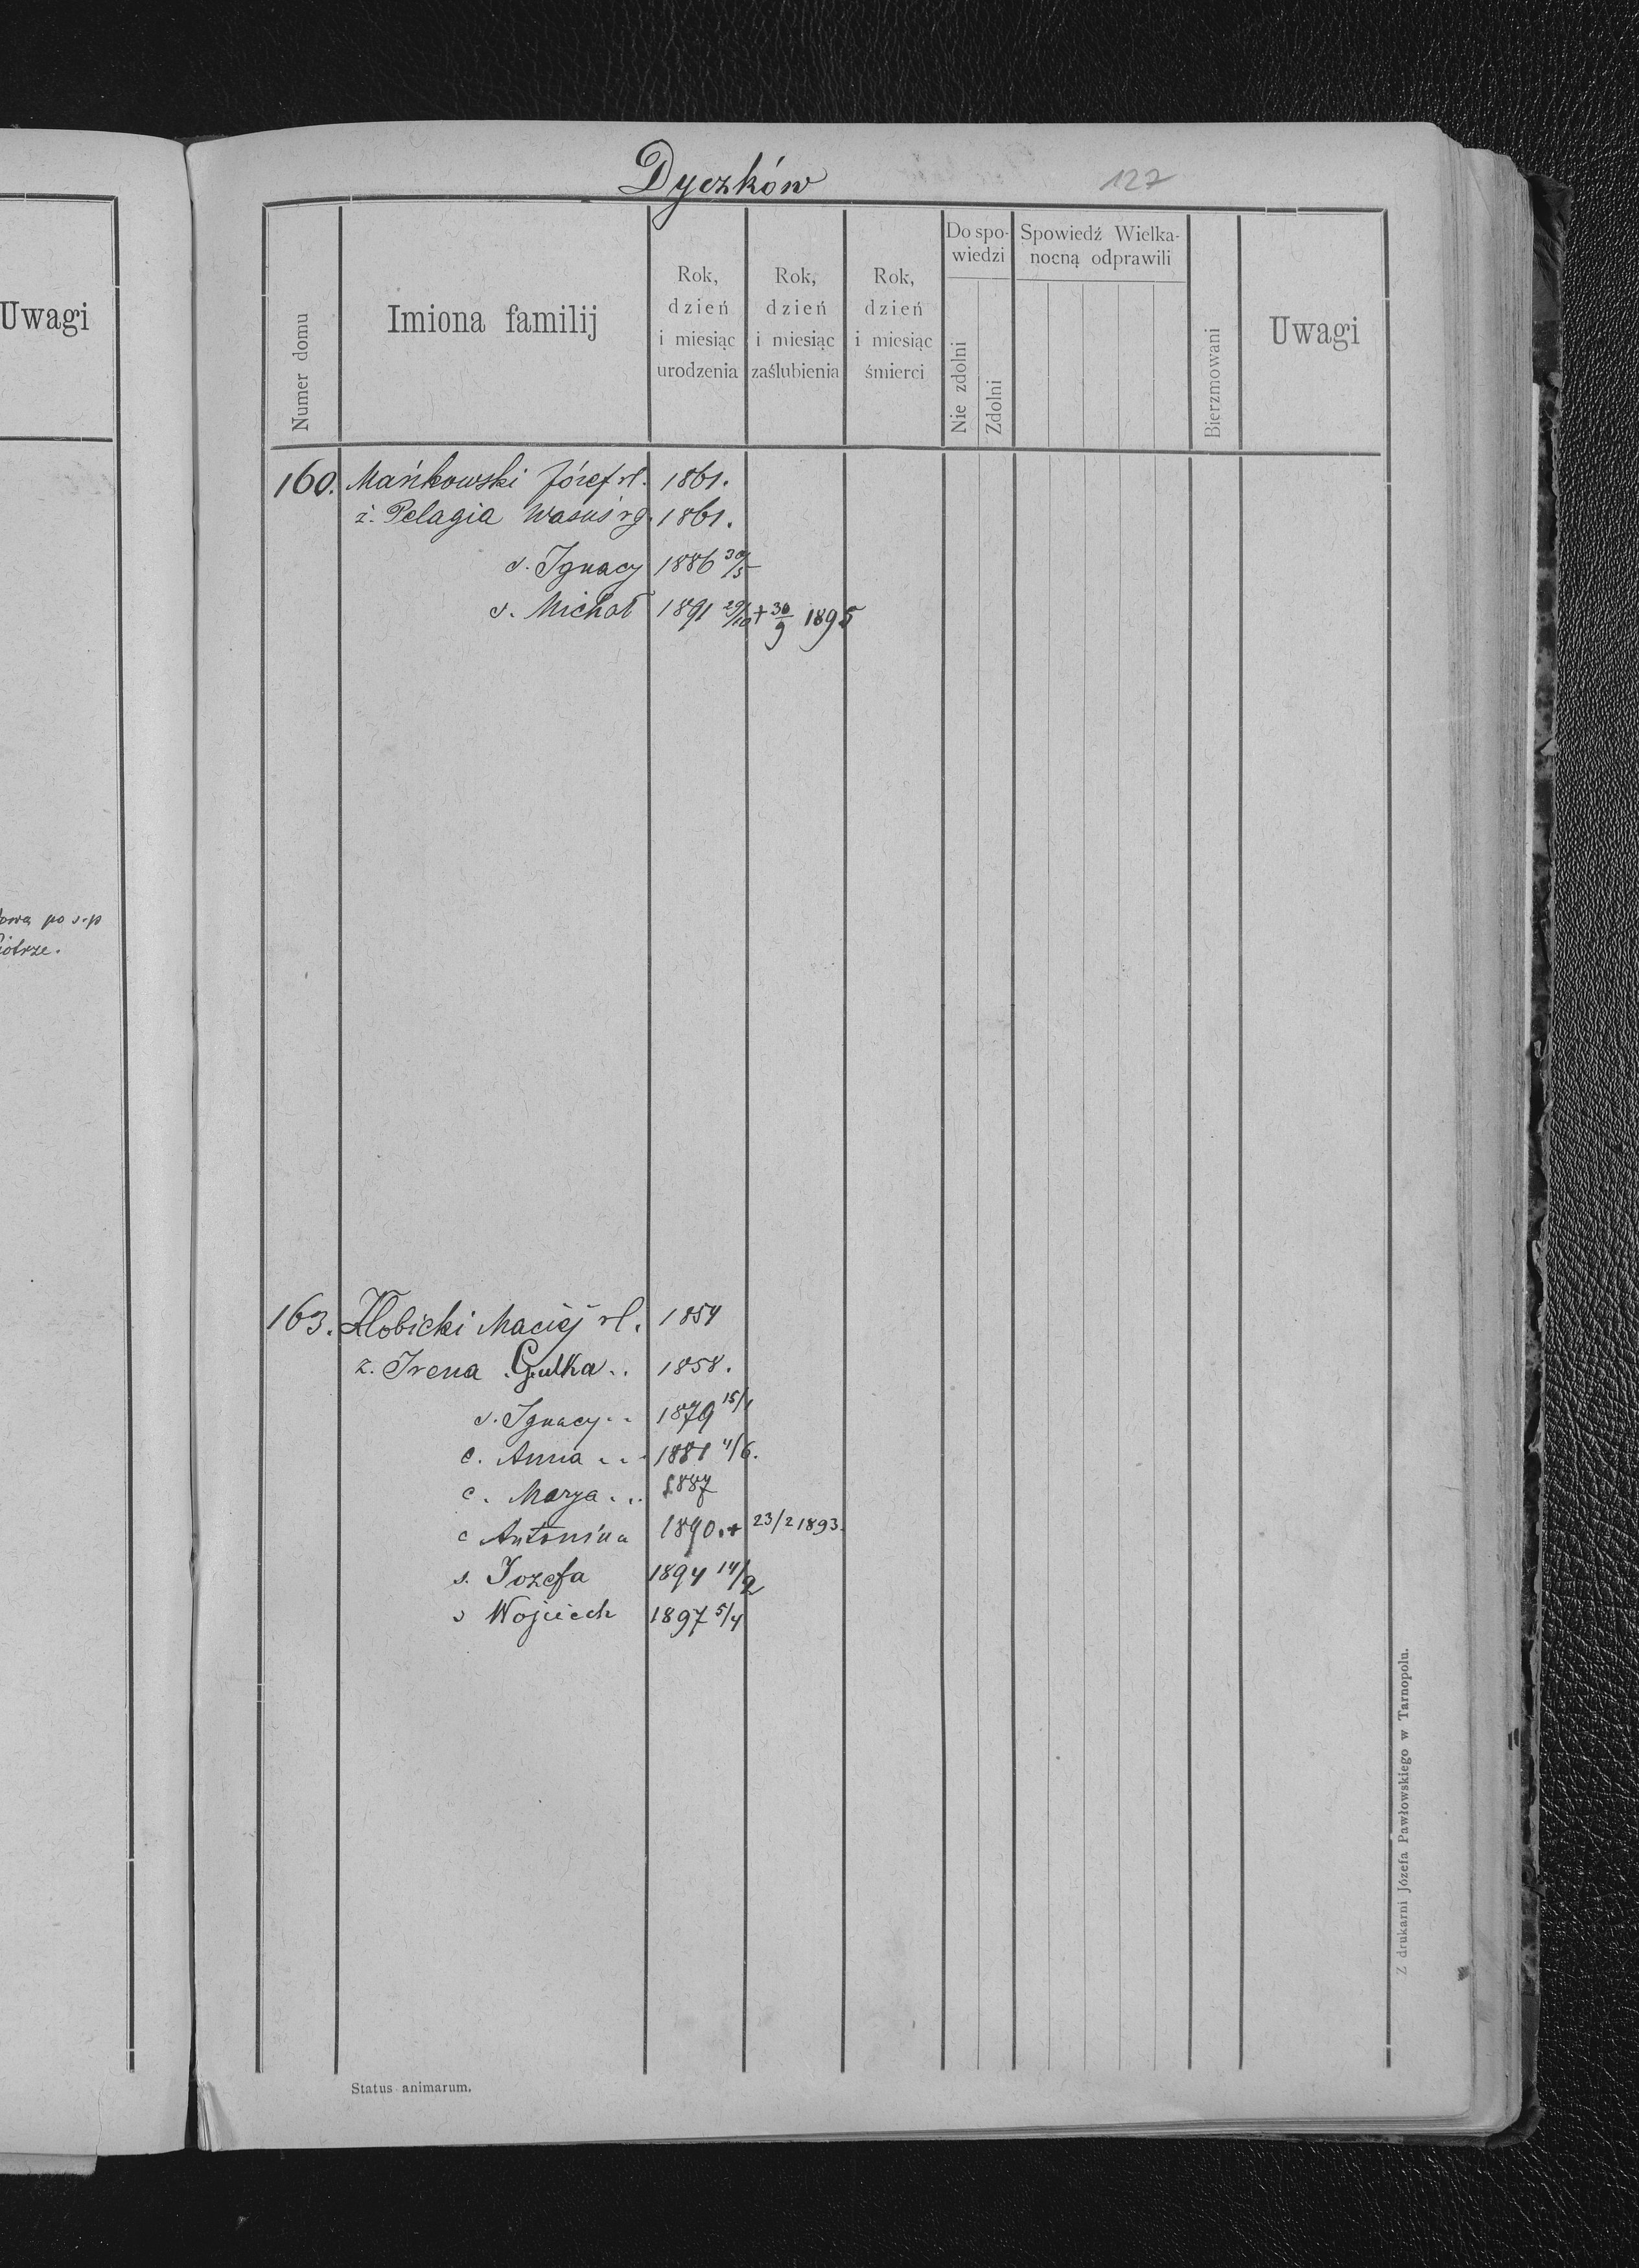 Uwagi
po ś.p
Dyczków
127
Numer domu
Imiona familij
Rok, dzień i miesiąc urodzenia
Rok, dzień i miesiąc zaślubienia
Rok, dzień i miesiąc śmierci
Do spo-wiedzi
Nie zdolni
Zdolni
Spowiedź Wielka-nocną odprawili
Bierzmowani
Uwagi
160. Mańkowski Józef rł. 1861.
ż. Pelagia rg. 1861.
s. Ignacy 1886 30/5
s. Michał 1891 29/10 + 30/9 1895
163. Maciéj rł. 1854
ż. Irena Gulka .. 1858.
s. Ignacy .. 1879 15/1
c. Anna ... 1881 4/6.
c. Marya ... 1887
c Antonina 1890. + 23/2 1893.
s. Jozefa 1894 14/2
s Wojciech 1897 5/4
Status animarum.
Z drukarni Józefa Pawłowskiego w Tarnopolu.